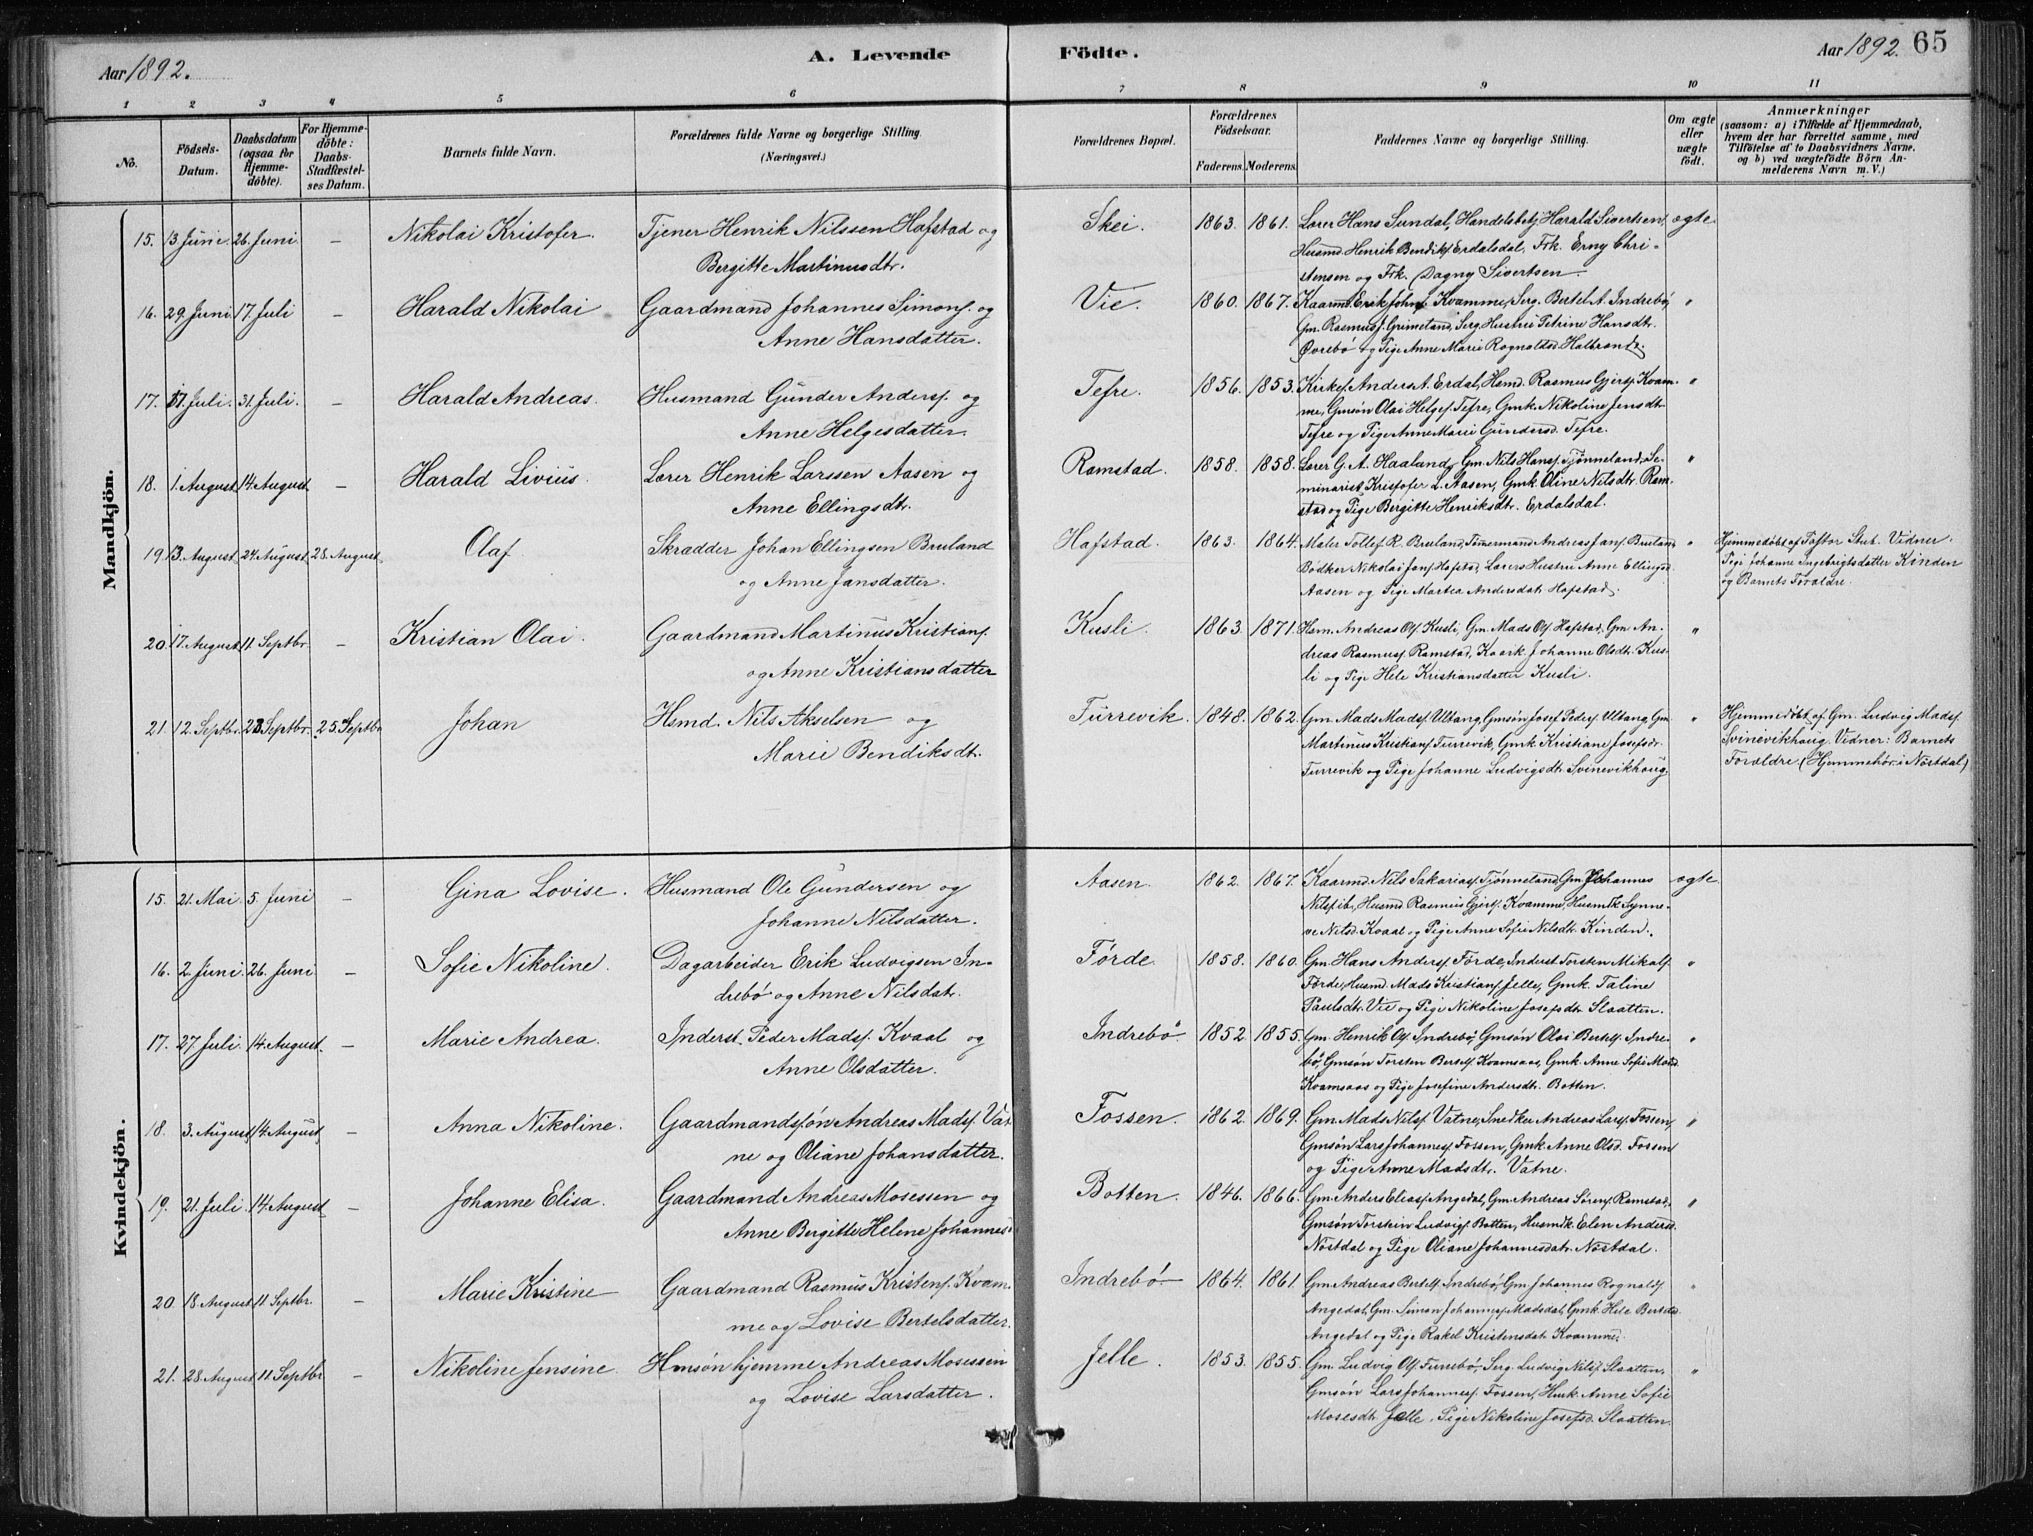 Aar 1892.
A. Levende
Födte.
Aar 1892. 65
1 2 3 4 5 6 7 8 9 10 11
No.
Födsels-Datum.
Daabsdatum (ogsaa for Hjemme-döbte).
For Hjemme-döbte: Daabs-Stadfæstel-ses Datum.
Barnets fulde Navn.
Forældrenes fulde Navne og borgerlige Stilling.
(Næringsvei.)
Forældrenes Bopæl.
Forældrenes Födselsaar.
Faderens. Moderens.
Faddernes Navne og borgerlige Stilling.
Om ægte eller uægte födt.
Anmærkninger
(saasom: a) i Tilfælde af Hjemmedaab,
hvem der har forrettet samme, med
Tilföielse af to Daabsvidners Navne,
og b) ved uægtefödte Börn An-
melderens Navn m. V.)
Mandkjön.
15. 13 Juni. 26 Juni – Nikolai Kristofer. Tjener Henrik Nilssen Hafstad og
Bergitte Martinusdtr.
Skei. 1863. 1861. Lærer Hans Sundal, Handelsbetj. Harald Sivertsen, ægte.
Husmd Henrik Bendiks. Erdalsdal, Frk. Erny Chri-
stensen og Frk. Dagny Sivertsen.
16. 29. Juni. 17. Juli – Harald Nikolai Gaardmand Johannes Simons. og
Anne Hansdatter.
Vie. 1860. 1867. Kaarmd Erik Johns. Kvamme, Serg. Bertel A. Indrebø, "
Gm. Rasmus J. Grimeland, Serg. Hustru Petrine Hansdtr.
Øvrebø og Pige Anne Marie Rognaldsd. Halbrand.
17. 17. Juli. 31. Juli. – Harald Andreas. Husmand Gunder Anders. og
Anne Helgesdatter.
Tefre. 1856. 1853. Kirkes. Anders A. Erdal, Hsmd. Rasmus Gjers. Kvam- "
me, Gmsøn Olai Helges. Tefre, Gmk. Nikoline Jensdtr.
Tefre og Pige Anne Marie Gundersd. Tefre.
18. 1. August. 14. August. – Harald Livius. Lærer Henrik Larssen Aasen og
Anne Ellingsdtr.
Ramstad. 1858. 1858. Lærer G. A. Haaland, Gm. Nils Hans. Tjønneland, Se- "
minarist Kristofer L. Aasen, Gmk. Oline Nilsdtr. Ram-
stad og Pige Bergitte Henriksdtr. Erdalsdal.
19. 13. August. 24. August. 28. August Olaf. Skrædder Johan Ellingsen Bruland
og Anne Jansdatter.
Hafstad. 1863. 1864. Maler Tollef R. Bruland, Timermand Andreas Jans. Bruland "
Bødker Nikolai Jans. Hafstad, Lærers Hustru Anne Ellingsd.
Aasen og Pige Martea Andersdat. Hafstad.
Hjemmedøbt af Pastor Stub. Vidner:
Pige Johanne Ingebrigtsdatter Kinden
og Barnets Forældre.
20. 17. August. 11. Septbr. – Kristian Olai. Gaardmand Martinus Kristians.
og Anne Kristiansdatter
Kusli. 1863. 1871. Hsm. Andreas Ols. Kusli, Gm. Mads Ols. Hafstad, Gm. An- "
dreas Rasmuss. Ramstad, Kaark. Johanne Olsdtr. Kus-
li og Pige Hele Kristiansdatter Kusli.
21. 12. Septbr. 23. Septbr. 25. Septbr Johan Hsmd. Nils Akselsen og
Marie Bendiksdtr.
Furrevik. 1848. 1862. Gm. Mads Mads. Ulltang, Gmsøn Josef Peders. Ulltang, Gm. "
Martinus Kristians. Furrevik, Gmk. Kristiane Josefsdr.
Furrevik og Pige Johanne Ludvigsdtr. Svinevikhaug.
Hjemmedøbt af Gm. Ludvig Mads.
Svinevikhaug. Vidner: Barnets
Forældre. (Hjemmehør. i Nøstdal)
Kvindekjön.
15. 21. Mai 5. Juni – Gina Lovise. Husmand Ole Gundersen og
Johanne Nilsdatter.
Aasen. 1862. 1867. Kaarmd. Nils Sakarias. Tjønneland, Gm. Johannes ægte
Nils. ib., Husmd Rasmus Gjers. Kvamme, Husmdk. Synne-
ve Nilsd. Kvaal og Pige Anne Sofie Nilsdtr. Kinden.
16. 2. Juni. 26. Juni – Sofie Nikoline. Dagarbeider Erik Ludvigsen In-
drebø og Anne Nilsdatr.
Førde. 1858. 1860. Gm. Hans Anders. Førde, Inderst Torsten Mikals. "
Førde, Husmd. Mads Kristians. Jelle, Gmk. Taline
Paulsdtr. Vie og Pige Nikoline Josefsdr. Slaatten.
17. 27. Juli 14. August. – Marie Andrea. Inderst. Peder Mads. Kvaal og
Anne Olsdatter.
Indrebø 1852. 1855. Gm. Henrik Ols. Indrebø, Gmsøn Olai Bertels. Indre- "
bø, Gmsøn Torsten Bertels. Kvamsaas, Gmk. Anne Sofie Matsd.
Kvamsaas og Pige Josefine Andersdt. Botten.
18. 3. August 14. August – Anna Nikoline. Gaardmandssøn Andreas Mads. Vat-
ne og Oliane Johansdatter.
Fossen. 1862. 1869. Gm. Mads Nils. Vatne, Snedker Andreas Lars. Fossen, "
Gmsøn Lars Johannes. Fossen, Gmk. Anne Olsd. Fossen
og Pige Anne Madsdtr. Vatne.
19. 21. Juli. 14. August – Johanne Elisa. Gaardmand Andreas Mosessen og
Anne Bergitte Helene Johannes:
Botten. 1846. 1866. Gm. Anders Elias. Angedal, Gm. Andreas Sørens. Ramstad, "
Gmsøn Torstein Ludvigs. Botten, Husmdk. Elen Andersd.
Nøstdal og Pige Oliane Johannesdatr. Nøstdal.
20. 18. August. 11. Septbr. – Marie Kristine Gaardmand Rasmus Kristens. Kvam-
me og Lovise Bertelsdatter.
Indrebø 1864. 1861. Gm. Andreas Bertels. Indrebø, Gm. Johannes Rognalds. "
Angedal, Gm. Simon Johannes. Madsdal, Gmk. Hele Bertelsd.
Angedal og Pige Rakel Kristensdat. Kvamme.
21. 28. August. 11. Septbr – Nikoline Jensine. Hmsøn hjemme Andreas Mosessen
og Lovise Larsdatter.
Jelle. 1853. 1855. Gm. Ludvig Ols. Furrebø, Serg. Ludvig Nils. Slaatten, "
Gmsøn Lars Johannes. Fossen, Husk. Anne Sofie
Mosesdt. Jelle, Pige Nikoline Josefsd. Slaatten.